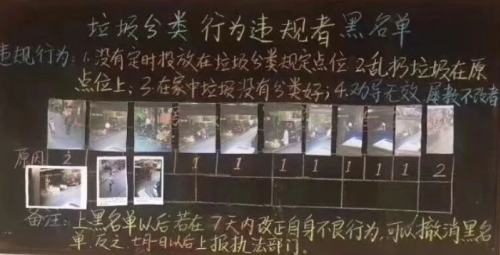 垃圾分类 行为违规者 黑名单
违规行为：1.没有定时投放在垃圾分类规定点位 2.乱扔垃圾在原
点位上；3.在家中垃圾没有分类好；4.劝导无效 屡教不改者
原因 2 1 1 1 1 1 1 1 2
备注：上黑名单以后若在7天内改正自身不良行为，可以撤消黑名
单，反之，七日以上报执法部门。